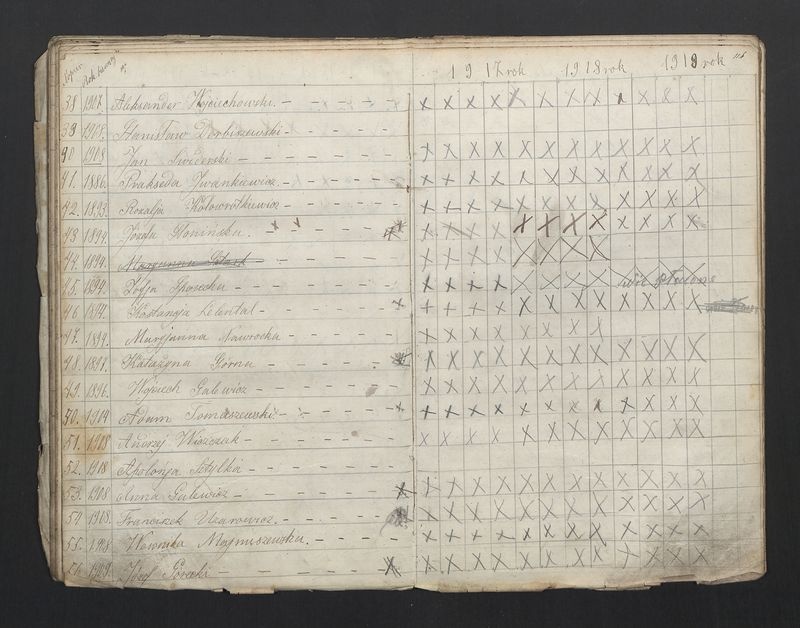 1917 rok 1918 rok 1919 rok
38 1907. Aleksander Wojciechowski. - -
39 1908. Stanisław Derbiszewski -
40 1908. Jan Świderski - - - - - -
41. 1886. Prakseda Iwankiewicz. - - - - -
42. 1893. Rozalja Kołowrótkiewicz - - - -
43 1894. Józefa Słonińska.
44. 1894.
45. 1894. Zofja
46 1894. Kostancja Lelental -
47. 1894. Maryjanna Nawrocka -
48. 1897. Katażyna Górna - - - - -
49. 1896. Wojciech Galewicz - - - - -
50. 1904 Adam Tomaszewski. - - - -
51. 1908 Andrzej - - - - - -
52. 1908 Apolonja Sztylka - - - - - -
53. 1908 Anna Galewicz - - - - - -
54 1908. Franciszek Uzarowicz. - - - -
55. 1908. Weronika Majnuszewska. - - -
56. 1909. Józef Górecki - - - - - -